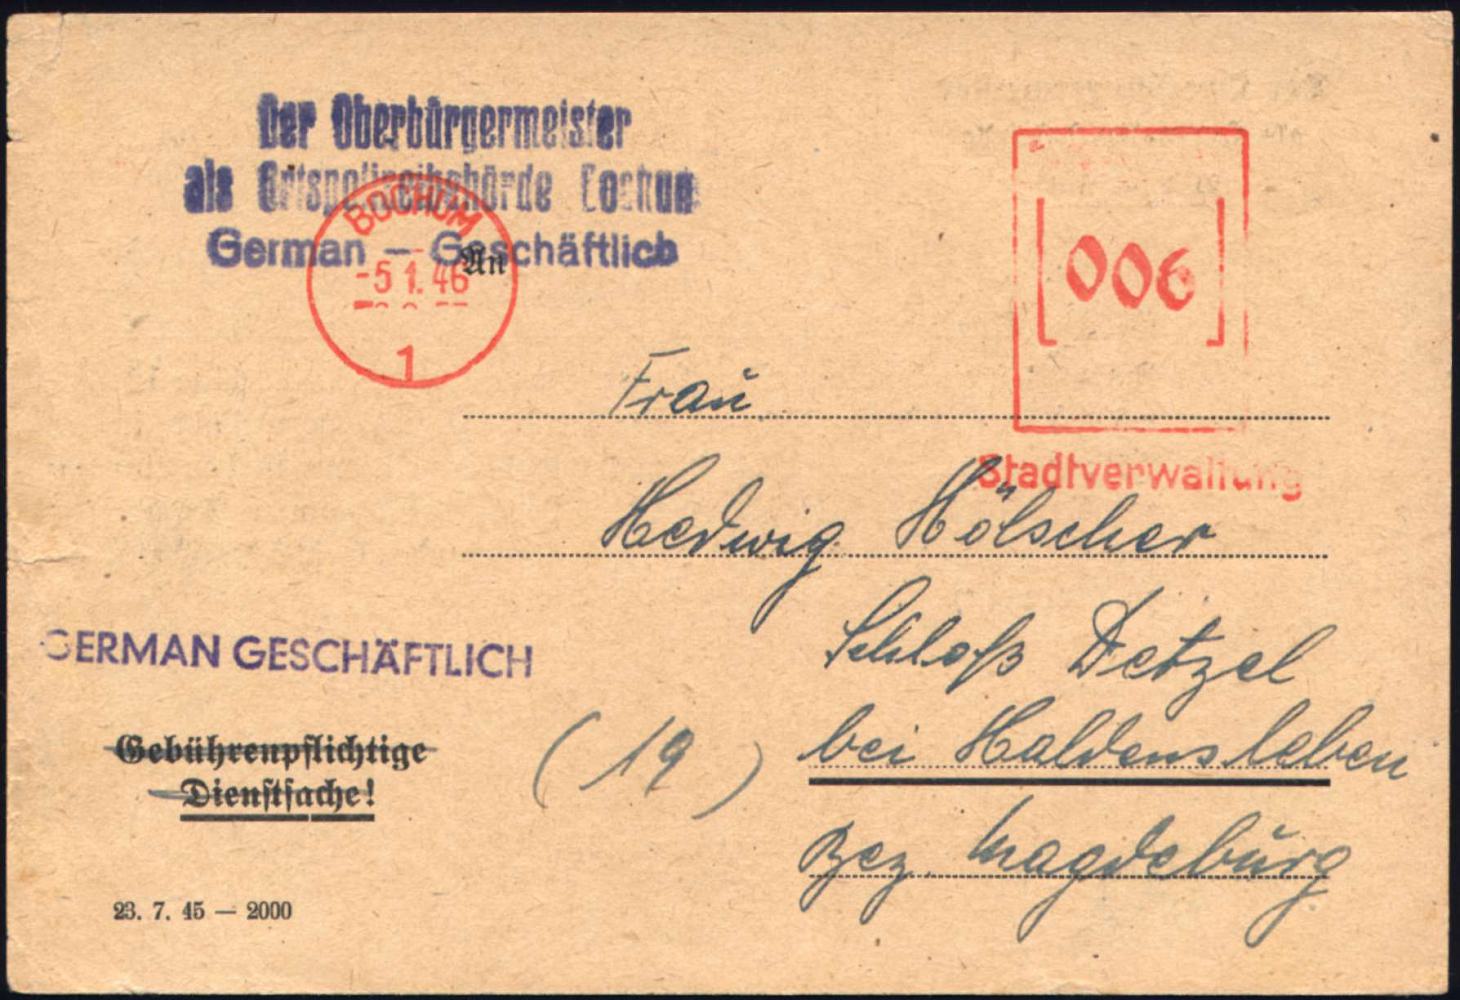 Der Oberbürgermeister
als Ortspolizeibehörde Bochum
German — Geschäftlich
BOCHUM
-5 1. 46
1
An
006
Stadtverwaltung
Frau
Hedwig Hölscher
Schloß Detzel
bei Haldensleben
Bez. Magdeburg
(19)
GERMAN GESCHÄFTLICH
Gebührenpflichtige
Dienstsache!
23. 7. 45 — 2000